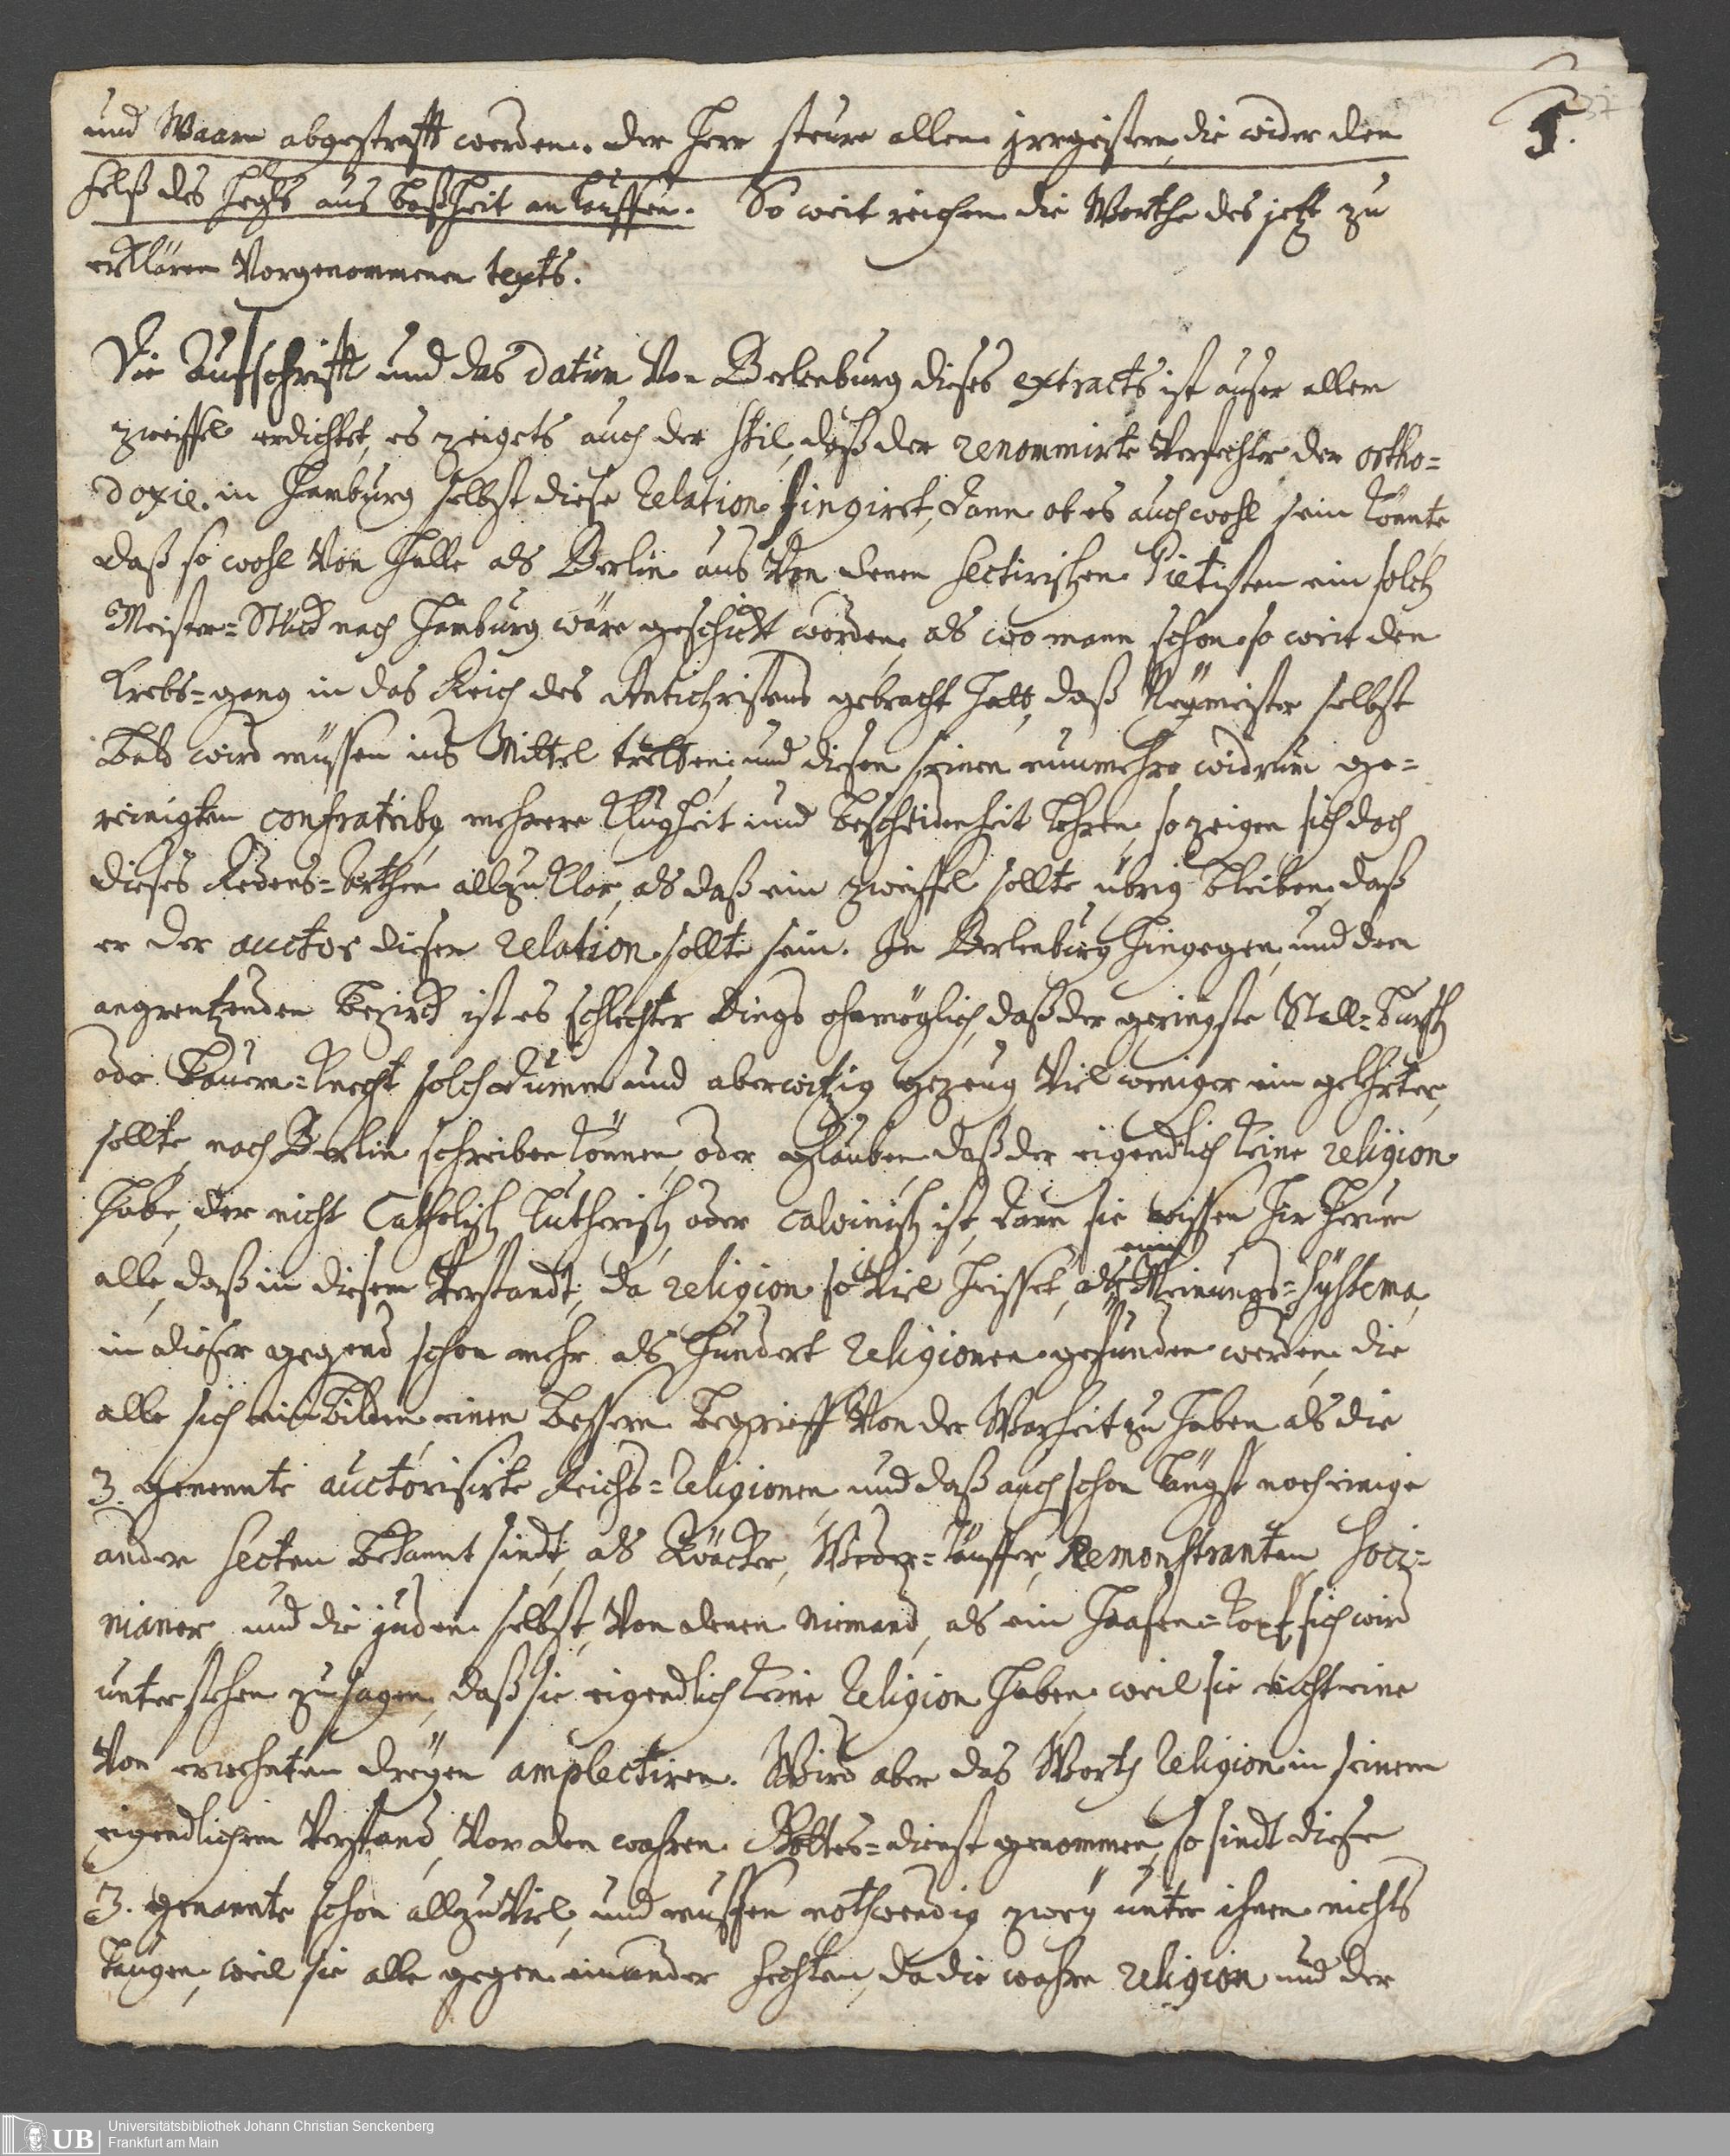 37
I.
und Waare abgestrafft werden. der Herr steure allen jrrgeistern, die wider den
felß des heyls aus boßheit anlauffen. So weit reichen die Worthe des jetzt zu
erklären Vorgenommenen texts.
Die Aufschrifft und das datum Von Berlenburg dieses extracts ist auser allem
zweiffel erdichtet, es zeigets auch der stil, daß der renommirte Verfechter der ortho=
doxie in Hamburg selbst diese relation fingiret, dann ob es auch wohl sein könnte,
daß so wohl Von Halle als Berlin aus Von denen sectirischen Pietisten ein solch
Meister=Stück nach Hamburg wäre geschickt worden, als wo mann schon so weit den
Krebs=gang in das Reich des Antichristens gebracht hatt, daß Neümeister selbst
bald wird müssen ins Mittel tretten, und diesen seinen nunmehro widrum ge=
reinigten confratribg mehrere Klugheit und bescheidenheit lehren, so zeigen sich doch
dieses Redens=Arthen allzu klar, als daß ein zweiffel sollte übrig bleiben, daß
er der auctor dieser relation sollte sein. In Berlenburg hingegen und den
angrentzenden bezirck ist es schlechter dings ohnmöglich, daß der geringste Stall=bursch
oder bauern=knecht solch dumm und aberwitzig gezeug Viel weniger ein gelehrter,
sollte nach Berlin schreiben können, oder glauben, daß der eigendlich keine religion
habe, der nicht Catholisch, Lutherisch oder calvinisch ist, dann sie wissen hir herum
alle, daß in diesem Verstandt, da religion so Viel heisset, als ein Meinungs=Systema,
in dieser gegend schon mehr als hundert religionen gefunden werden, die
alle sich einbilden einen bessern begrieff Von der Warheit zu haben als die
3. genennte auctorisirte Reichs=religionen und daß auch schon längst noch einige
andere secten bekannt sindt, als Qväcker, Wieder=täuffer, Remonstranten, Soci=
nianer und die juden selbst, Von denen niemand, als ein Haasen=kopf sich wird
unterstehen zu sagen, daß sie eigendlich keine religion haben, weil sie nicht eine
Von erwehnten dreyen amplectiren. Wird aber das Worth religion in seinem
eigendlichem Verstand, Vor den wahren Gottes=dienst genommen, so sindt diese
3. genannte schon allzu Viel, und mussen nothwendig zwey unter ihnen nichts
taugen, weil sie alle gegen einander fechten, da die wahre religion und der
UB
Universitätsbibliothek Johann Christian Senckenberg
Frankfurt am Main